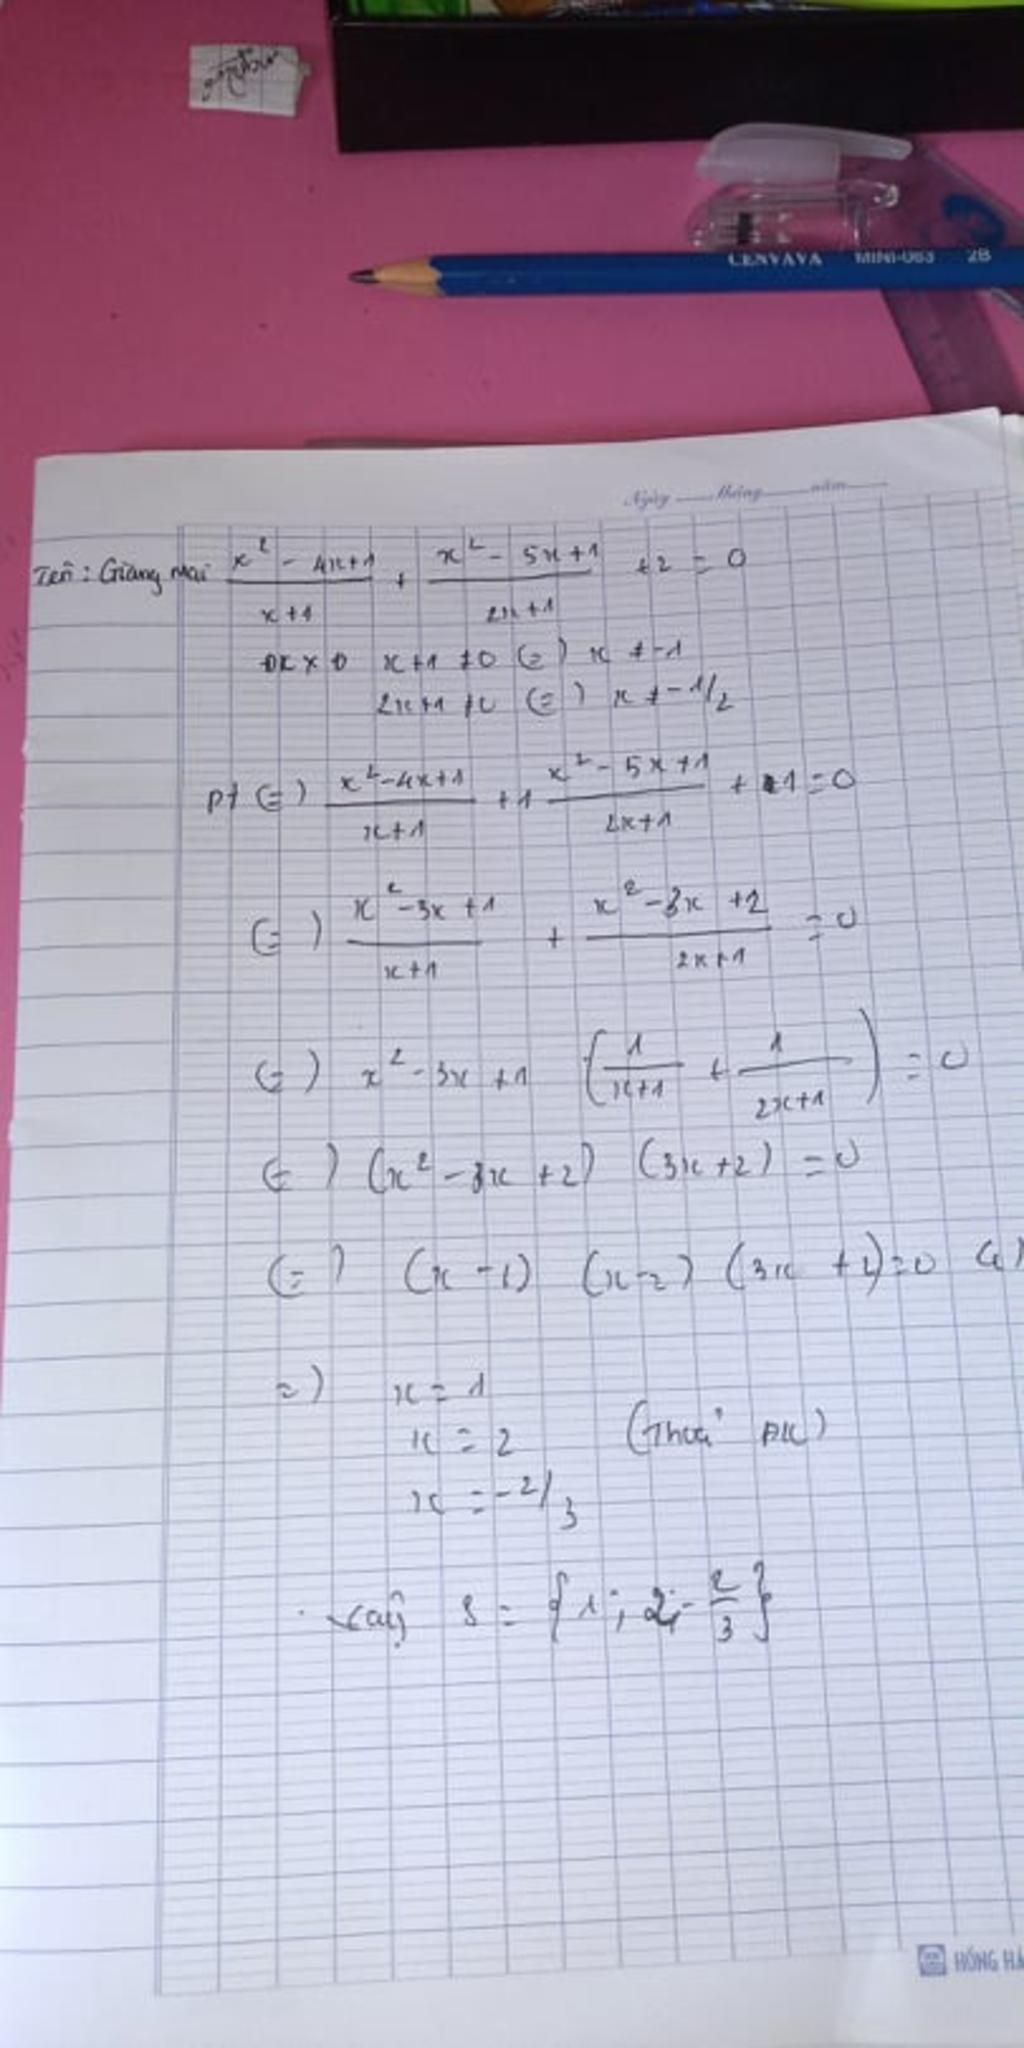 CENVAVA MINI-063 2B
Ngày tháng năm
Tên: Giang Mai x² - 4x+1 / x+1 + x² - 5x+1 / 2x+1 +2 = 0
ĐKXĐ x+1 ≠0 (=) x ≠ -1
2x+1 ≠0 (=) x ≠ -1/2
pt (=) x²-4x+1 / x+1 +1 x² - 5x+1 / 2x+1 + 1 = 0
(=) x²-3x+1 / x+1 + x²-3x+2 / 2x+1 = 0
(=) x²-3x+1 (1 / x+1 + 1 / 2x+1) = 0
(=) (x²-3x+2) (3x+2) = 0
(=) (x-1) (x-2) (3x+2)=0
=) x = 1
x = 2 (Thoả ĐK)
x = -2/3
Vậy S = {1; 2; -2/3}
HỒNG HÀ